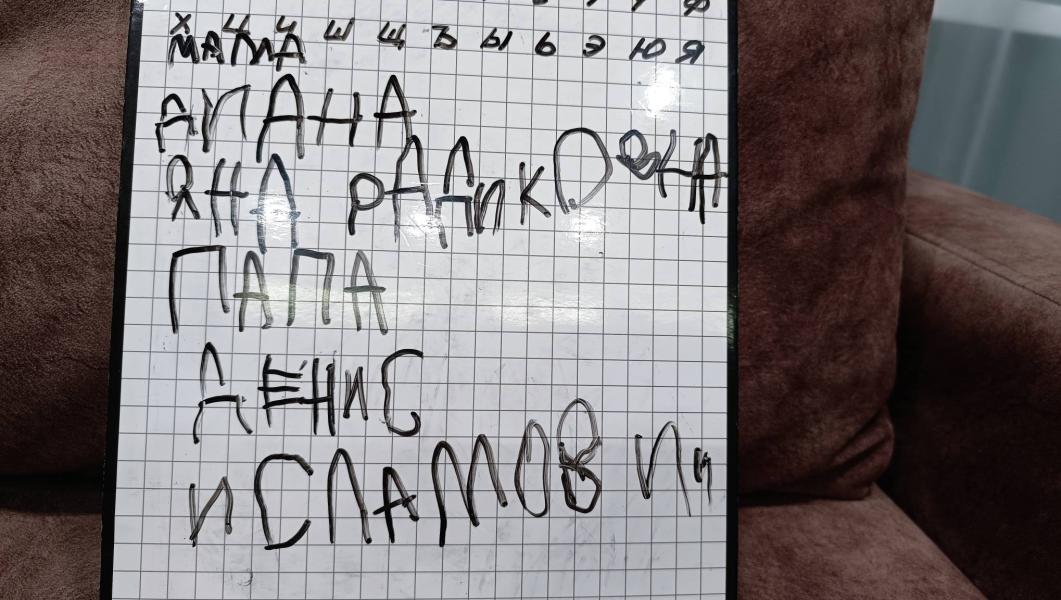 Х Ц Ч Ш Щ Ъ Ы Ь Э Ю Я
МАМА
АЛАНА
ЯНА РАДИКОВНА
ПАПА
ДЕНИС
ИСЛАМОВ ИИ